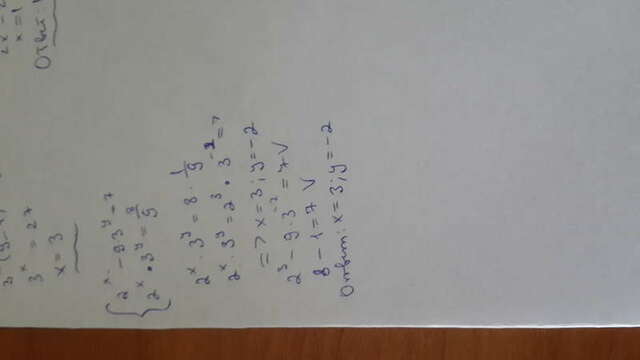 2x - 2
x = 1
Ответ:
3^x = 27
x = 3
{ 2^x - 9·3^y = 7
2^x · 3^y = 8/9
2^x · 3^y = 8 · 1/9
2^x · 3^y = 2^3 · 3^-2 =>
=> x = 3; y = -2
2^3 - 9·3^-2 = 7 √
8 - 1 = 7 √
Ответ: x = 3; y = -2